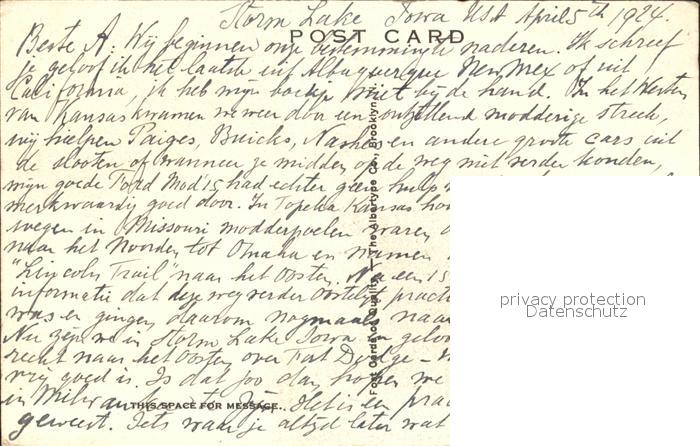 Storm Lake Iowa USA April 5th 1924.
POST CARD
Beste A: Wij beginnen onze bestemming te naderen. Ik schreef
je geloof ik het laatste uit Albuquerque New Mex of uit
California, ik heb mijn boekje niet bij de hand. In het Westen
van Kansas kwamen we weer door een ontzettend modderige streek,
wij hielpen Paiges, Buicks, Nashes en andere groote cars uit
de slooten of wanneer ze midden op de weg niet verder konden,
mijn goede Ford Mod '15 had echter geen hulp
merkwaardig goed door. In Topeka Kansas
wegen in Missouri modderpoelen waren
naar het Noorden tot Omaha en namen
"Lincoln Trail" naar het Oosten. Na een 15
informatie dat deze weg verder Oostelijk
was en gingen daarom nogmaals naar
Nu zijn we in Storm Lake Iowa en
recht naar het Oosten over Fort Dodge -
vrij goed is. Is dat zoo dan hopen we
in Milwaukee te zijn. Het is een
geweest. Iets waar je altijd later wat
THIS SPACE FOR MESSAGE.
Post Cards of Quality. — The Albertype Co., Brooklyn,
privacy protection
Datenschutz